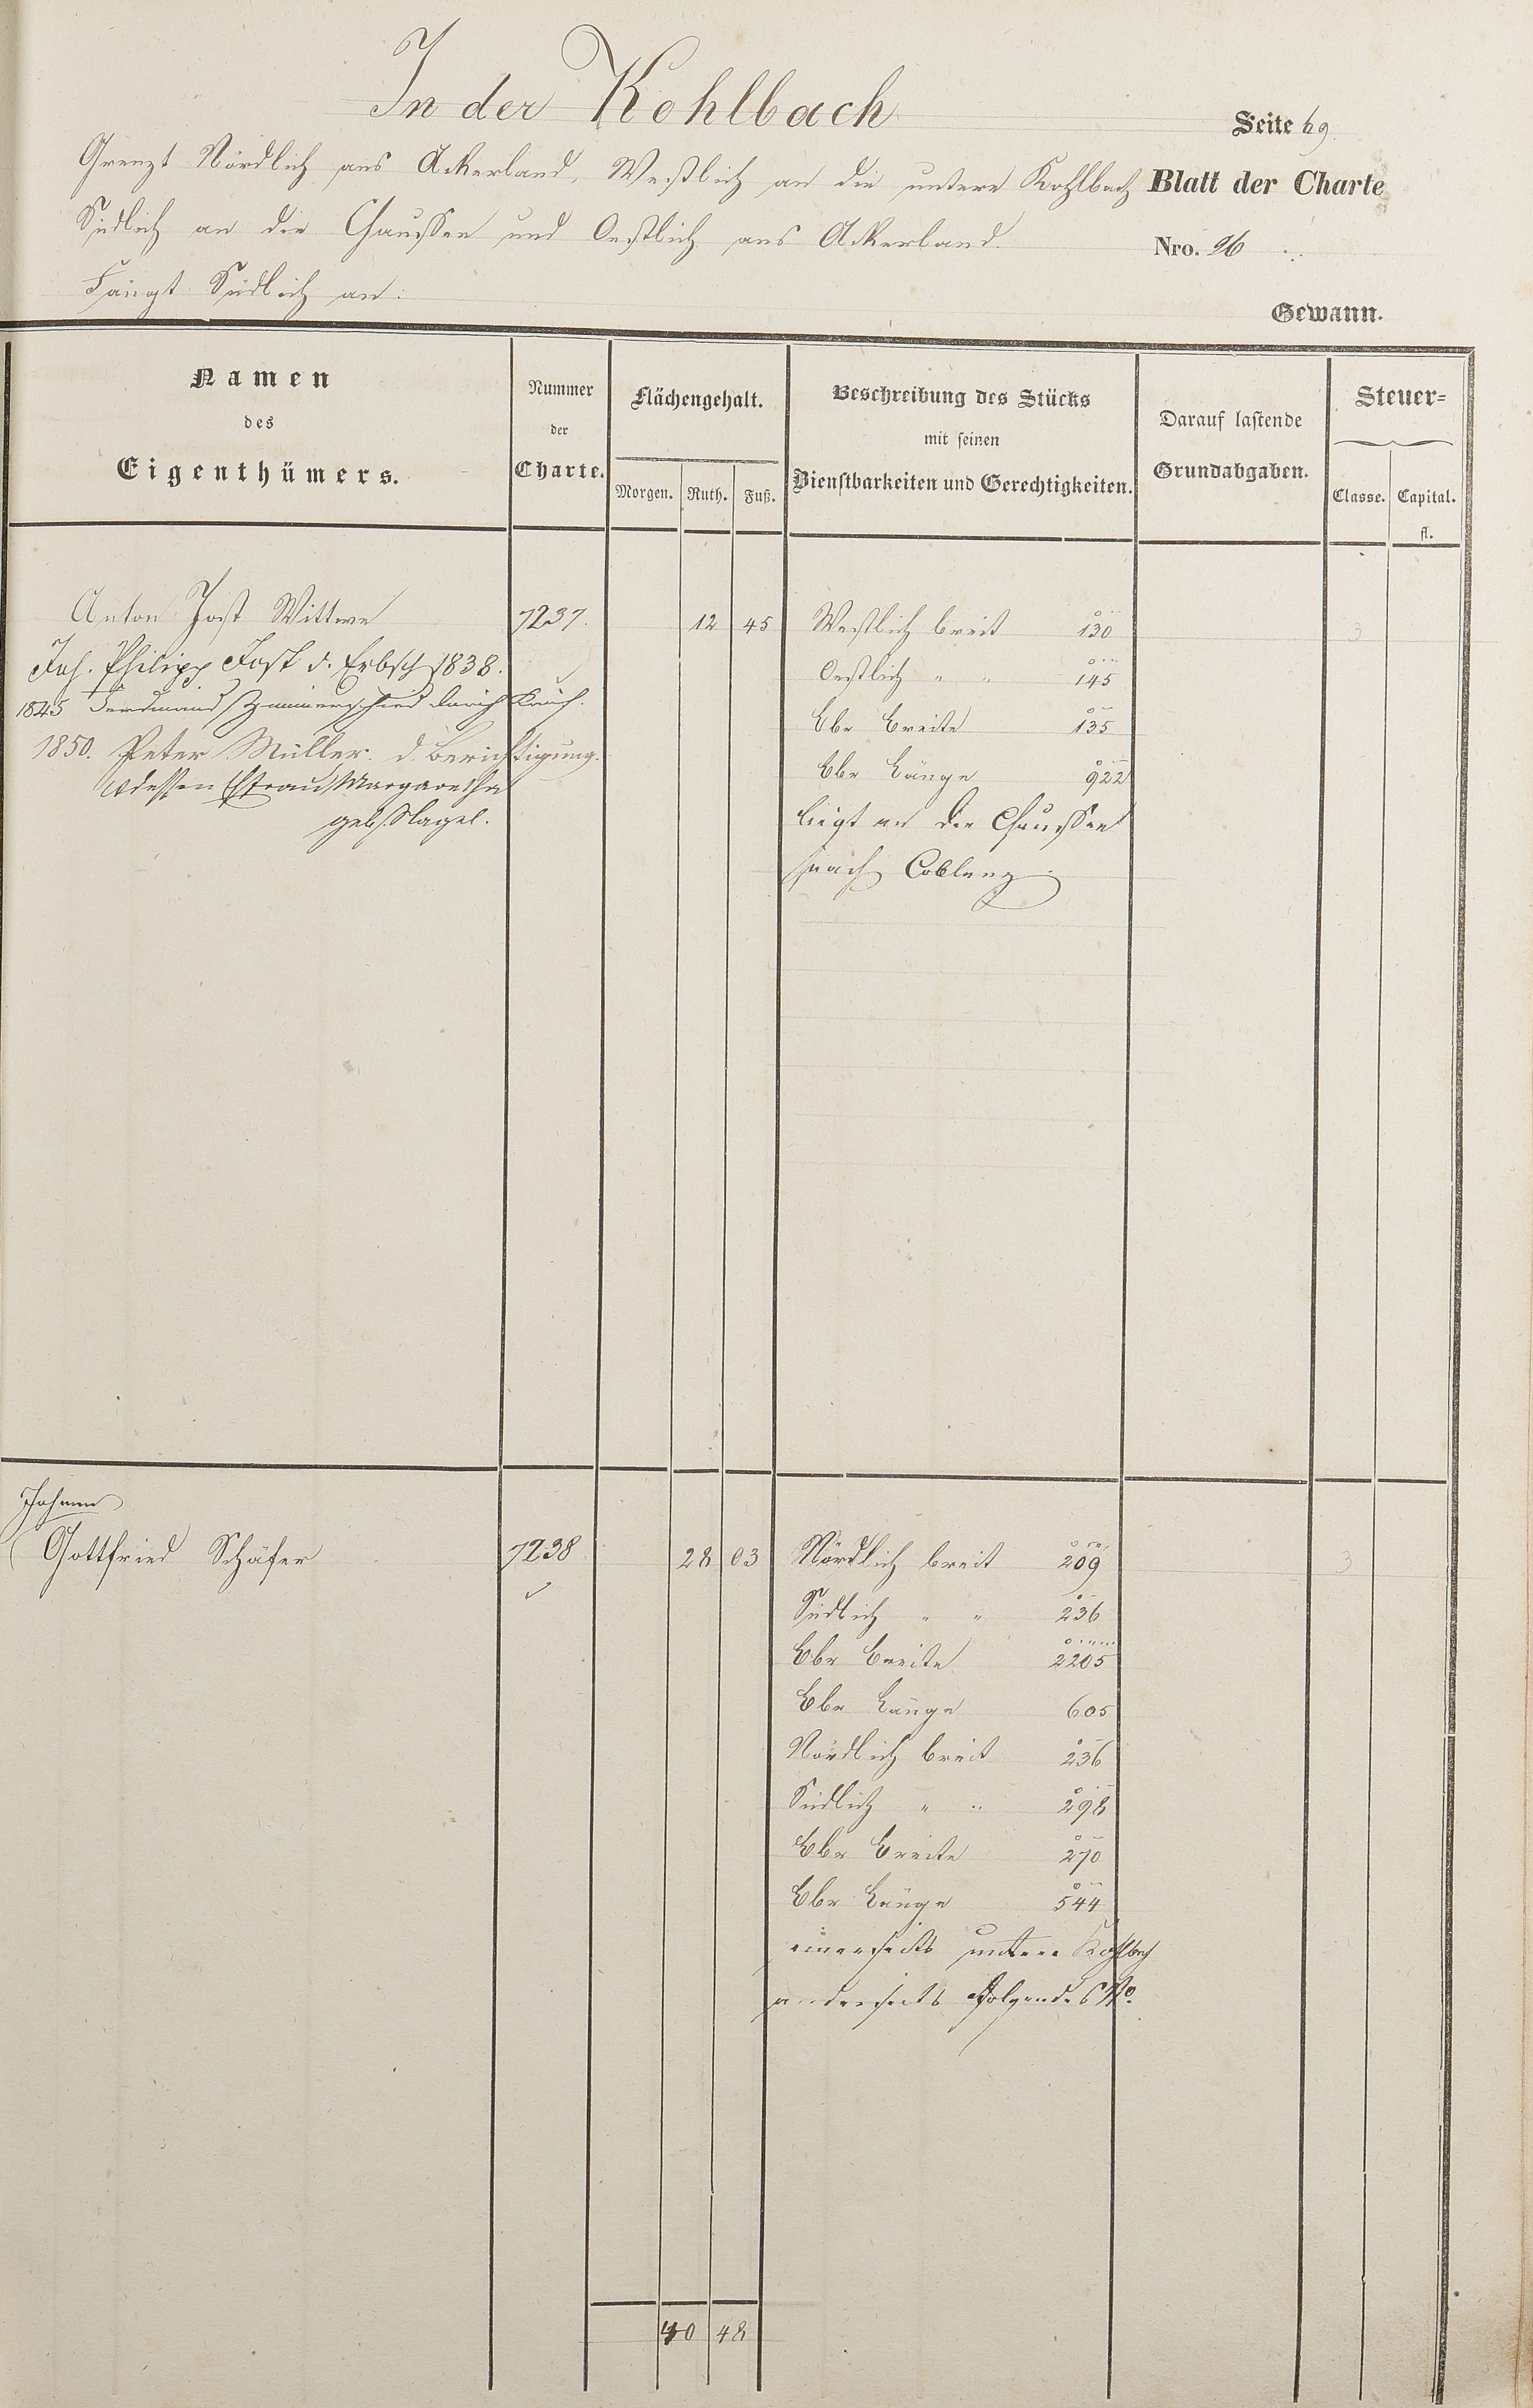 In der Kohlbach
Seite 69.
Grenzt Nördlich ans Ackerland, Westlich an die untere Kohlbach
Blatt der Charte
Südlich an die Chaussee und Oestlich ans Ackerland.
Nro. 26
Fängt Südlich an:
Gewann.
Namen
des
Eigenthümers.
Nummer
der
Charte.
Flächengehalt.
Morgen. Ruth. Fuß.
Beschreibung des Stücks
mit seinen
Dienstbarkeiten und Gerechtigkeiten.
Darauf lastende
Grundabgaben.
Steuer=
Classe. Capital.
fl.
Anton Jost Wittwe 7237. 12 45 Westlich breit 130 3
Joh. Philipp Jost d. Erbsch 1838. Oestlich " " 145
1845 Ferdinand Zimmerschied durch Kauf. Ebr Breite 135
1850. Peter Müller d. Berichtigung. Ebr Länge 922
dessen Ehfrau Margaretha
geb. Nagel.
liegt an der Chaussee
nach Coblenz
Johann
Gottfried Schäfer 7238 28 03 Nördlich breit 209 3
Südlich " " 236
Ebr Breite 2205
Ebr Länge 605
Nördlich breit 236
Südlich " " 298
Ebr Breite 270
Ebr Länge 544
einerseits untere Kohlbach
anderseits folgende No.
40 48